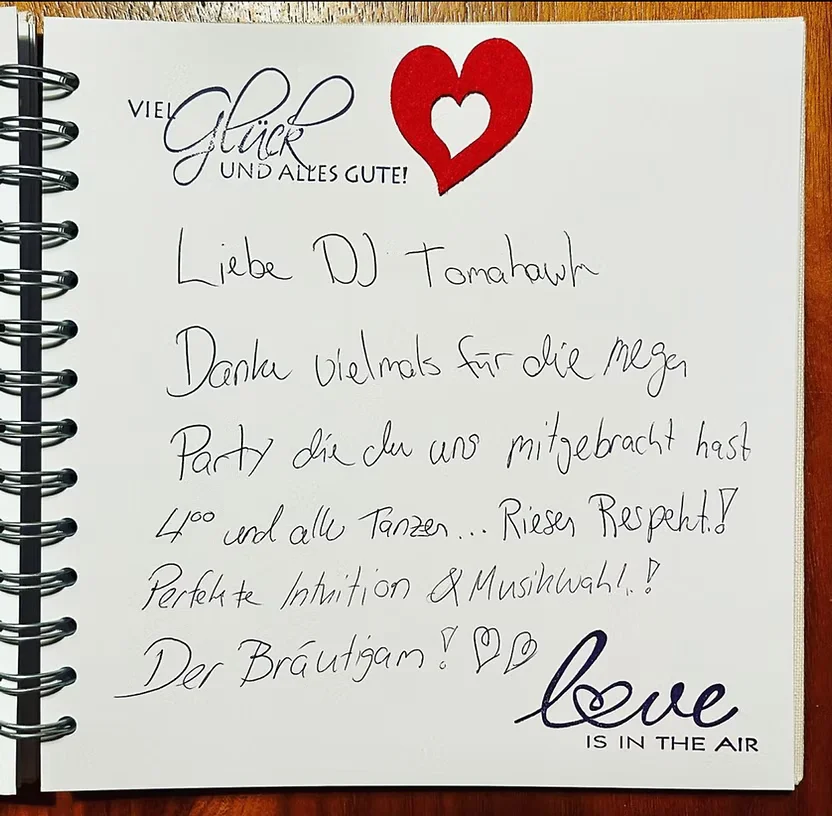 VIEL
Glück
UND ALLES GUTE!
Liebe DJ Tomahawk
Danke vielmals für die mega
Party die du uns mitgebracht hast
4⁰⁰ und alle Tanzen... Riesen Respekt!
Perfekte Intuition & Musikwahl.!
Der Bräutigam! ♡♡
love
IS IN THE AIR